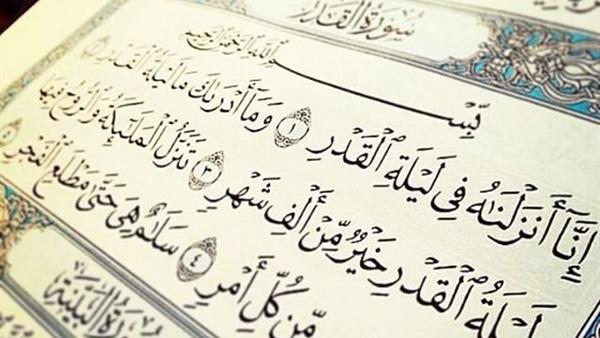 سُورَةُ القَدْرِ
بِسْمِ ٱللَّهِ ٱلرَّحْمَٰنِ ٱلرَّحِيمِ
إِنَّآ أَنزَلْنَٰهُ فِى لَيْلَةِ ٱلْقَدْرِ ١ وَمَآ أَدْرَىٰكَ مَا لَيْلَةُ ٱلْقَدْرِ
لَيْلَةُ ٱلْقَدْرِ خَيْرٌ مِّنْ أَلْفِ شَهْرٍ ٣ تَنَزَّلُ ٱلْمَلَٰٓئِكَةُ وَٱلرُّوحُ فِيهَا
مِّن كُلِّ أَمْرٍ ٤ سَلَٰمٌ هِىَ حَتَّىٰ مَطْلَعِ ٱلْفَجْرِ ٥
سُورَةُ البَيِّنَةِ